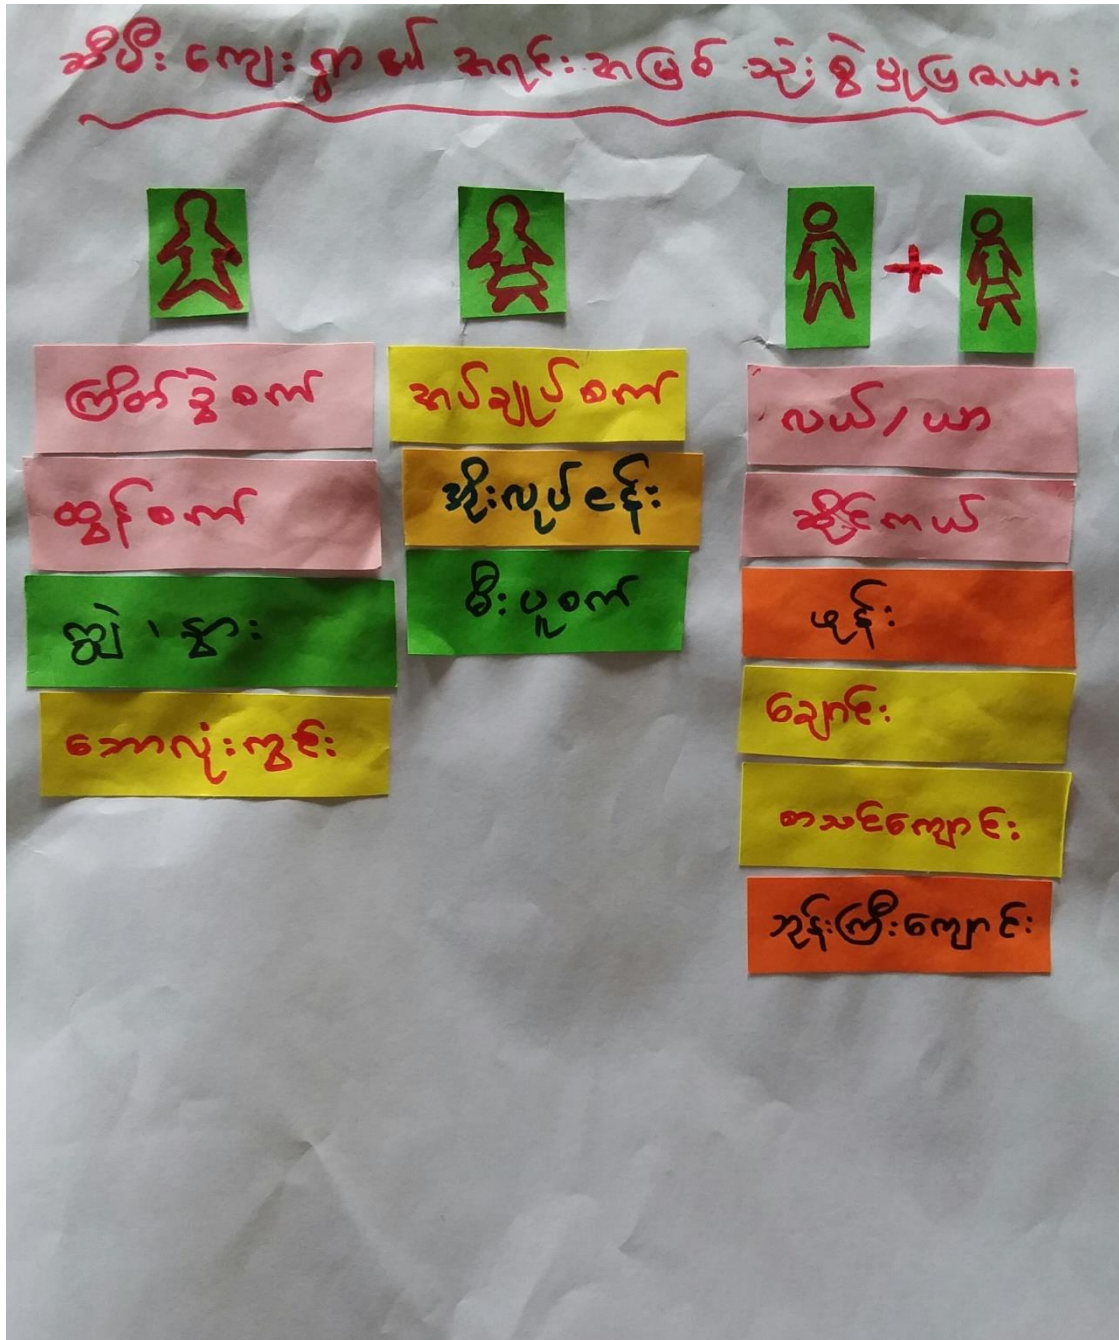 ဆီမီးကျေးရွာ၏ အရင်းအမြစ် သုံးစွဲမှုပြဇယား
ကြိတ်ခွဲစက်
ထွန်စက်
ကျွဲ၊ နွား
ဘောလုံးကွင်း
အပ်ချုပ်စက်
အိုးလုပ်ငန်း
မီးပူစက်
လယ်/ယာ
ဆိုင်ကယ်
ဖုန်း
ချောင်း
စာသင်ကျောင်း
ဘုန်းကြီးကျောင်း